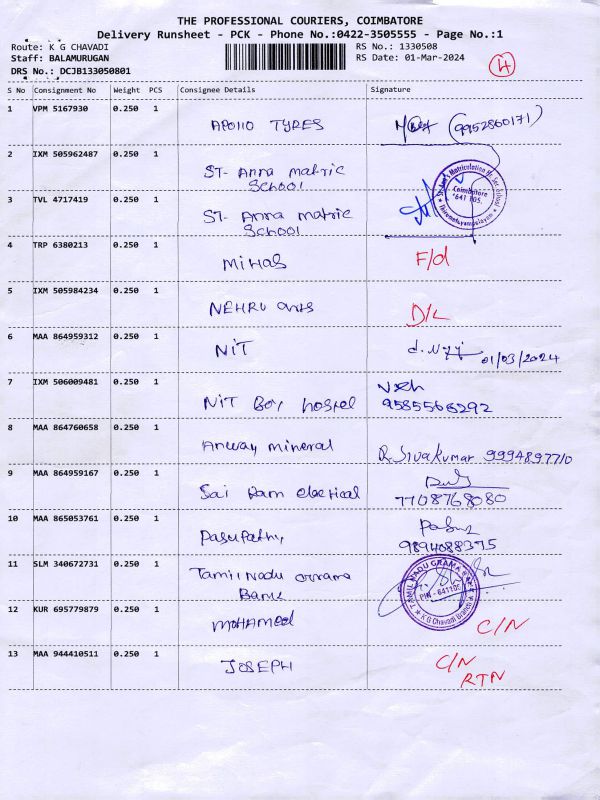 THE PROFESSIONAL COURIERS, COIMBATORE
Delivery Runsheet - PCK - Phone No.:0422-3505555 - Page No.:1
Route: K G CHAVADI RS No.: 1330508
Staff: BALAMURUGAN RS Date: 01-Mar-2024
DRS No.: DCJB133050801 4
S No Consignment No Weight PCS Consignee Details Signature
1 VPM 5167930 0.250 1 APOllO TYRES (9952860171)
2 IXM 505962487 0.250 1 ST- Anna matric
School
3 TVL 4717419 0.250 1 ST- Anna matric
School
St. Ann's Matriculation Hr. Sec. School
Coimbatore
641 105.
4 TRP 6380213 0.250 1 MiHas F/d
5 IXM 505984234 0.250 1 NEHRU arts D/L
6 MAA 864959312 0.250 1 NiT 01/03/2024
7 IXM 506009481 0.250 1 NiT Boy hostel
9585566292
8 MAA 864760658 0.250 1 mineral R. Sivakumar 9994897710
9 MAA 864959167 0.250 1 Sai Ram electical
7708768080
10 MAA 865053761 0.250 1 Pasupathy
9894088375
11 SLM 340672731 0.250 1 Tamil Nadu grama
Bank
TAMIL NADU GRAMA BANK
PIN - 641105
K G Chavadi Branch
12 KUR 695779879 0.250 1 MOHAMED C/N
13 MAA 944410511 0.250 1 JOSEPH C/N
RTN